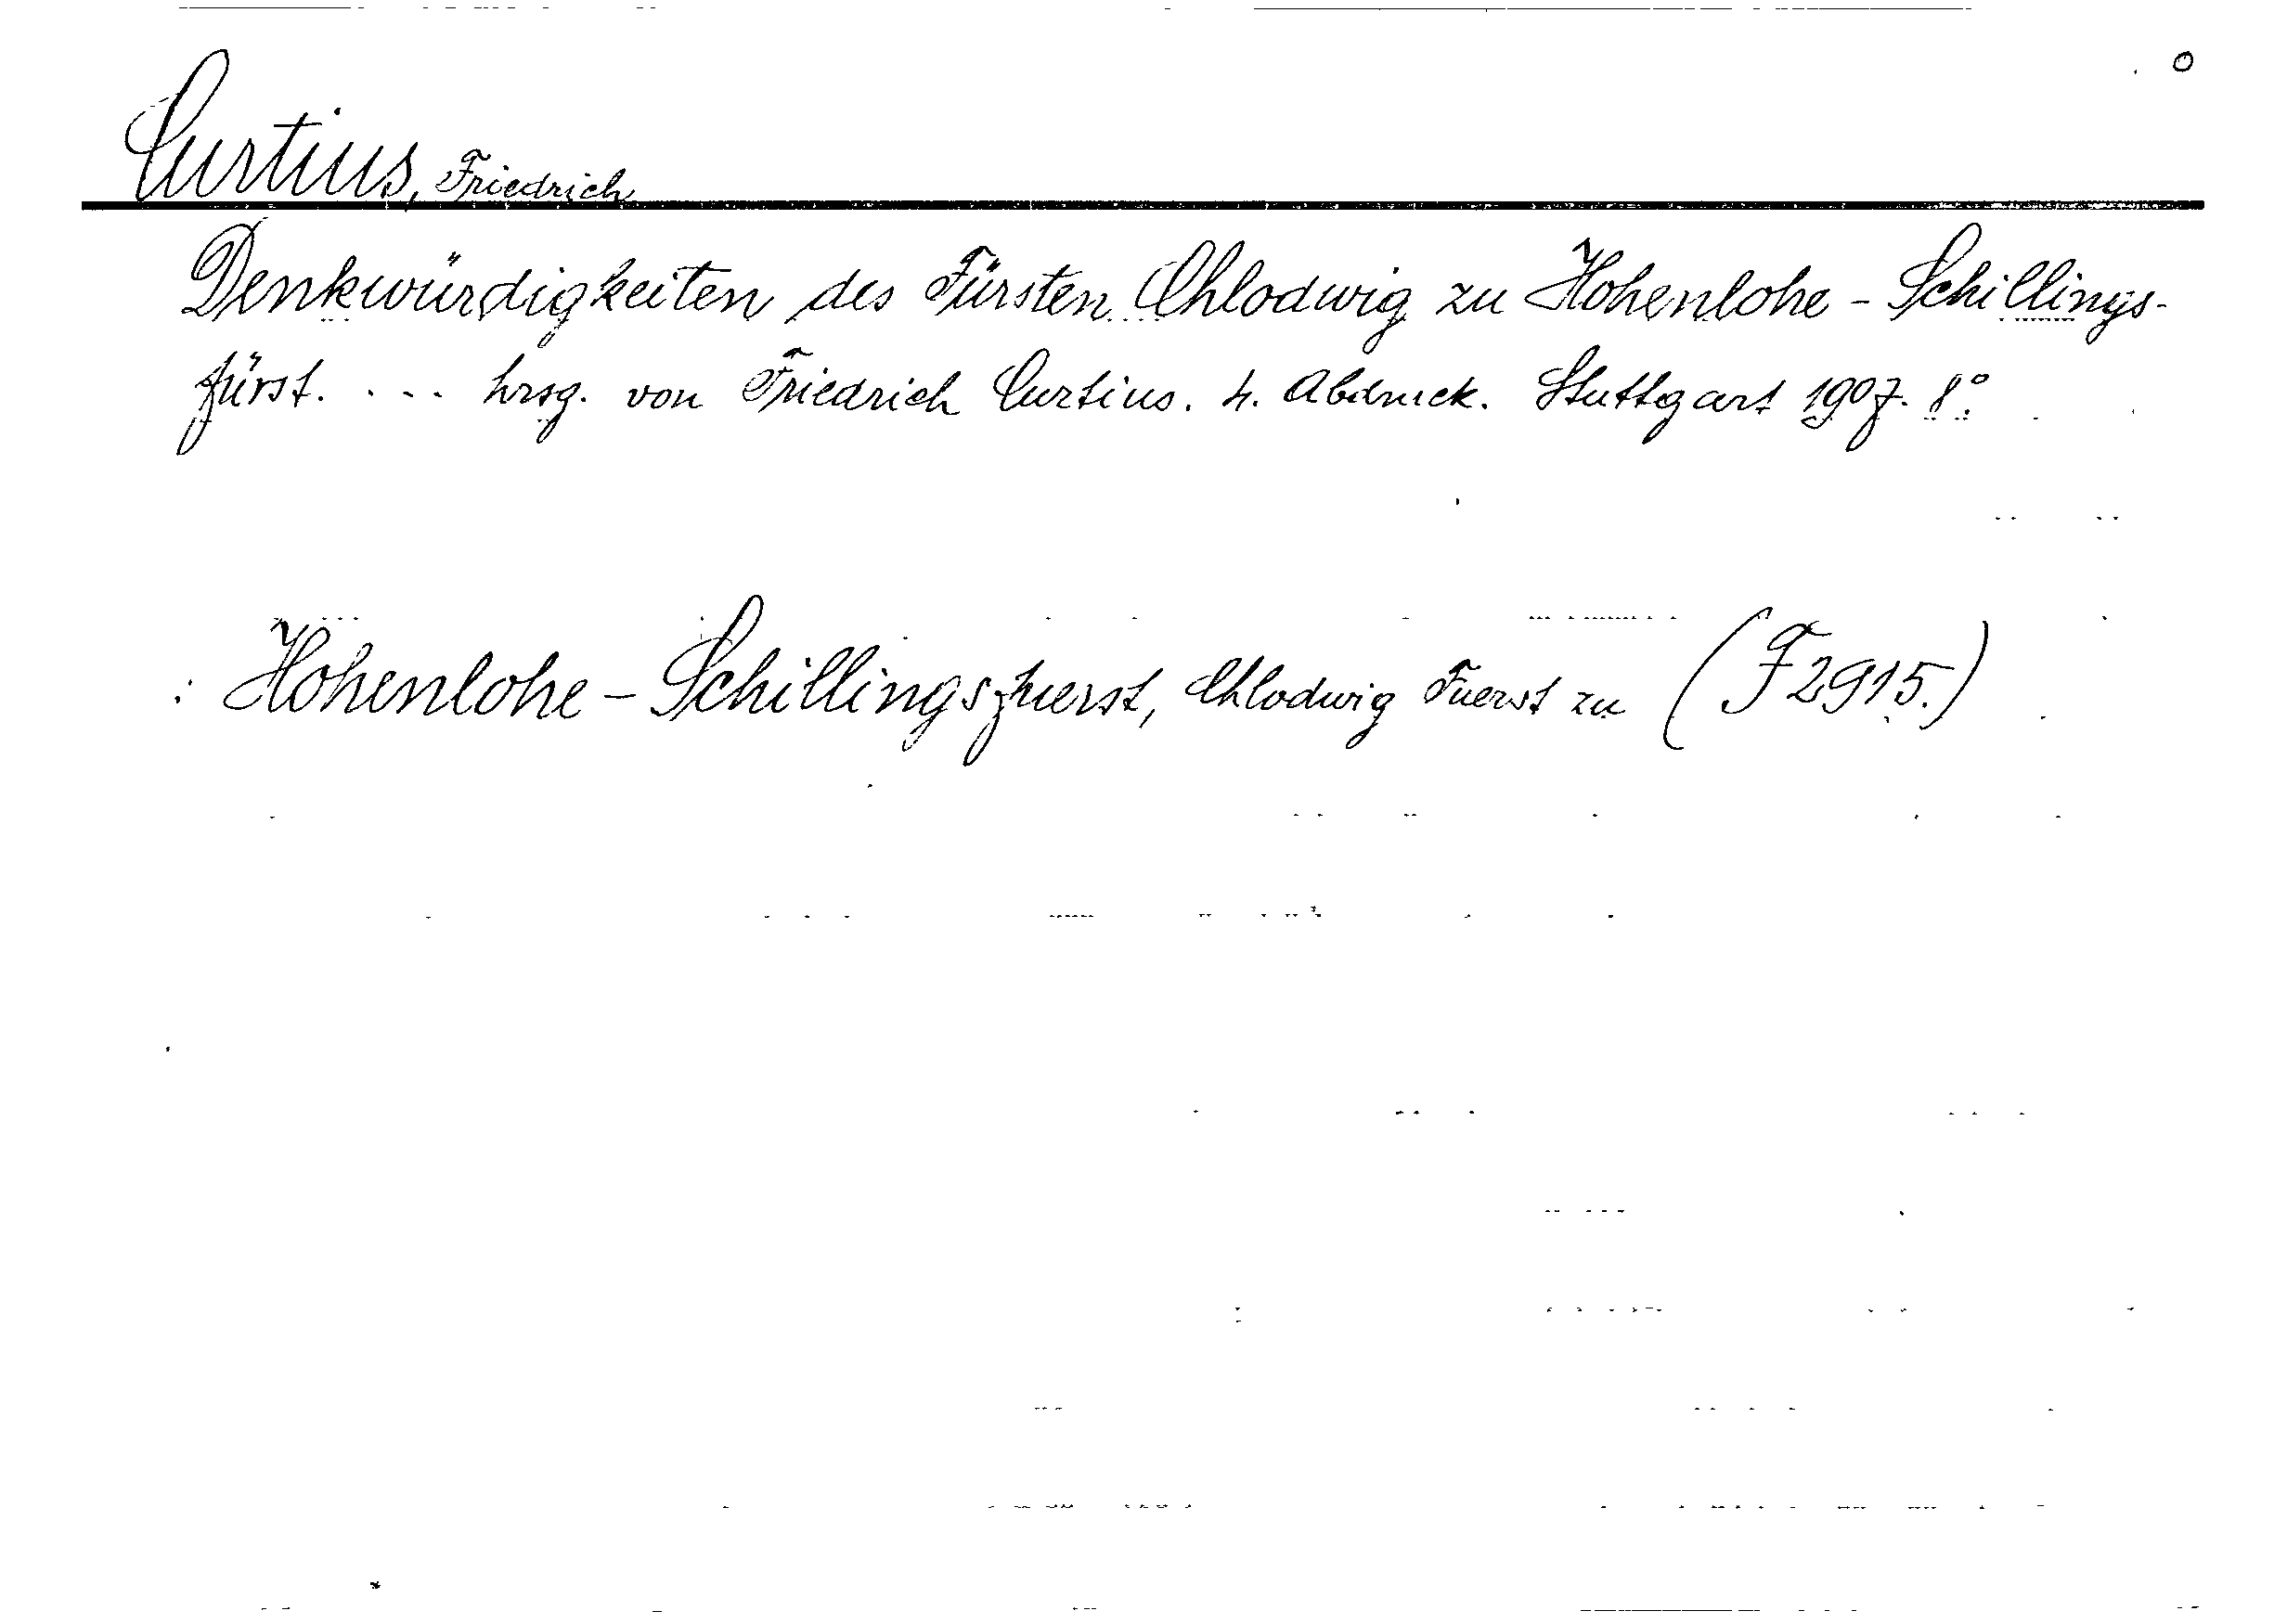 Curtius, Friedrich
Denkwürdigkeiten des Fürsten Chlodwig zu Hohenlohe-Schillings-
fürst. ... hrsg. von Friedrich Curtius. 4. Abdruck. Stuttgart 1907. 8°.
: Hohenlohe-Schillingsfuerst, Chlodwig Fuerst zu (F 2915.)